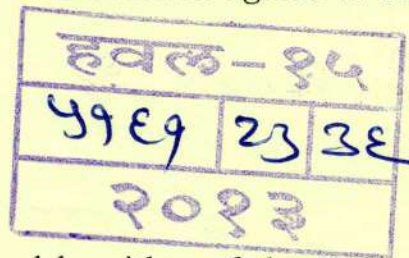 हवल-१५
५१६१ २३ ३६
२०१३